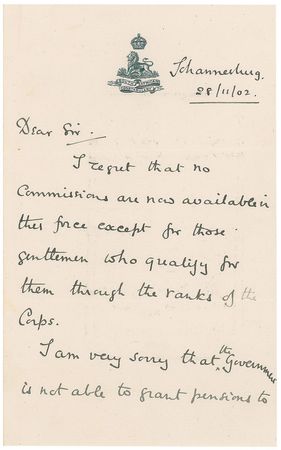 Johannesburg.
28/11/02.
Dear Sir.
I regret that no
Commissions are now available in
this force except for those
gentlemen who qualify for
them through the ranks of the
Corps.
I am very sorry that the Government
is not able to grant pensions to